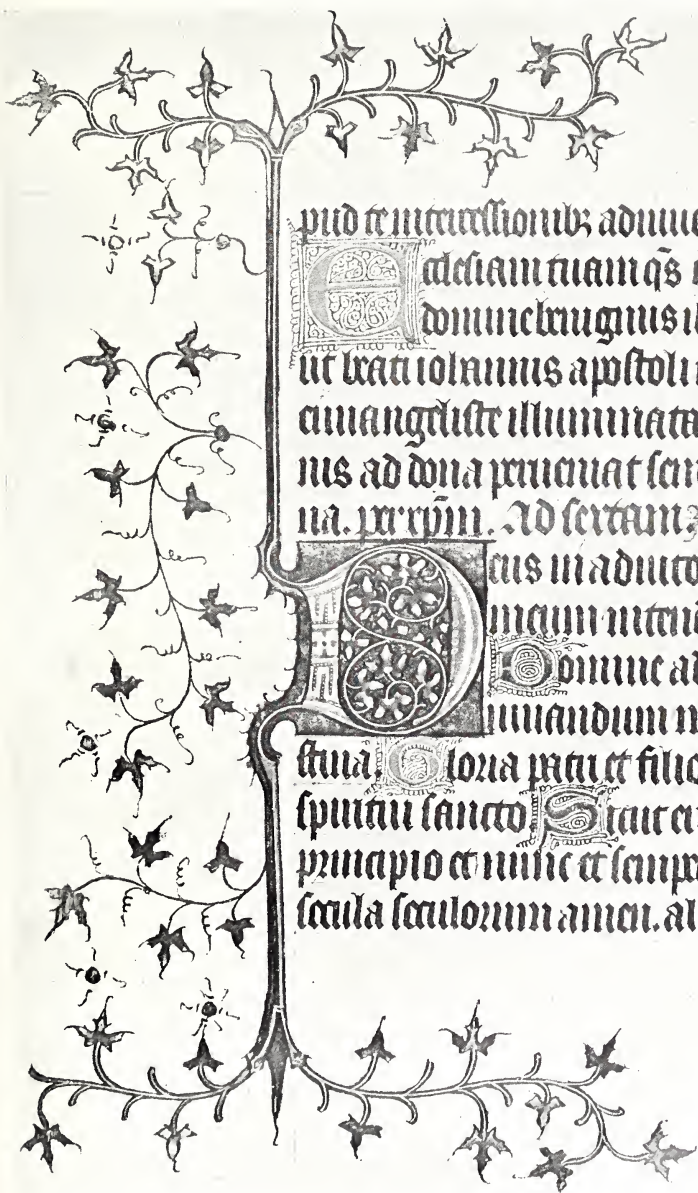 pud te intercessionibꝫ adiuue
Ecclesiam tuam qs̄
domine benignus il
ut beati iohannis apostoli
euuangeliste illuminata
nis ad dona perueniat sem
na. per xp̄m. Ad sextam
Deus in adiuto
meum inten
Domine a
iuuandum
stina. Gloria patri et filio
spiritui sancto Sicut e
principio et nunc et sempe
secula seculorum amen. al